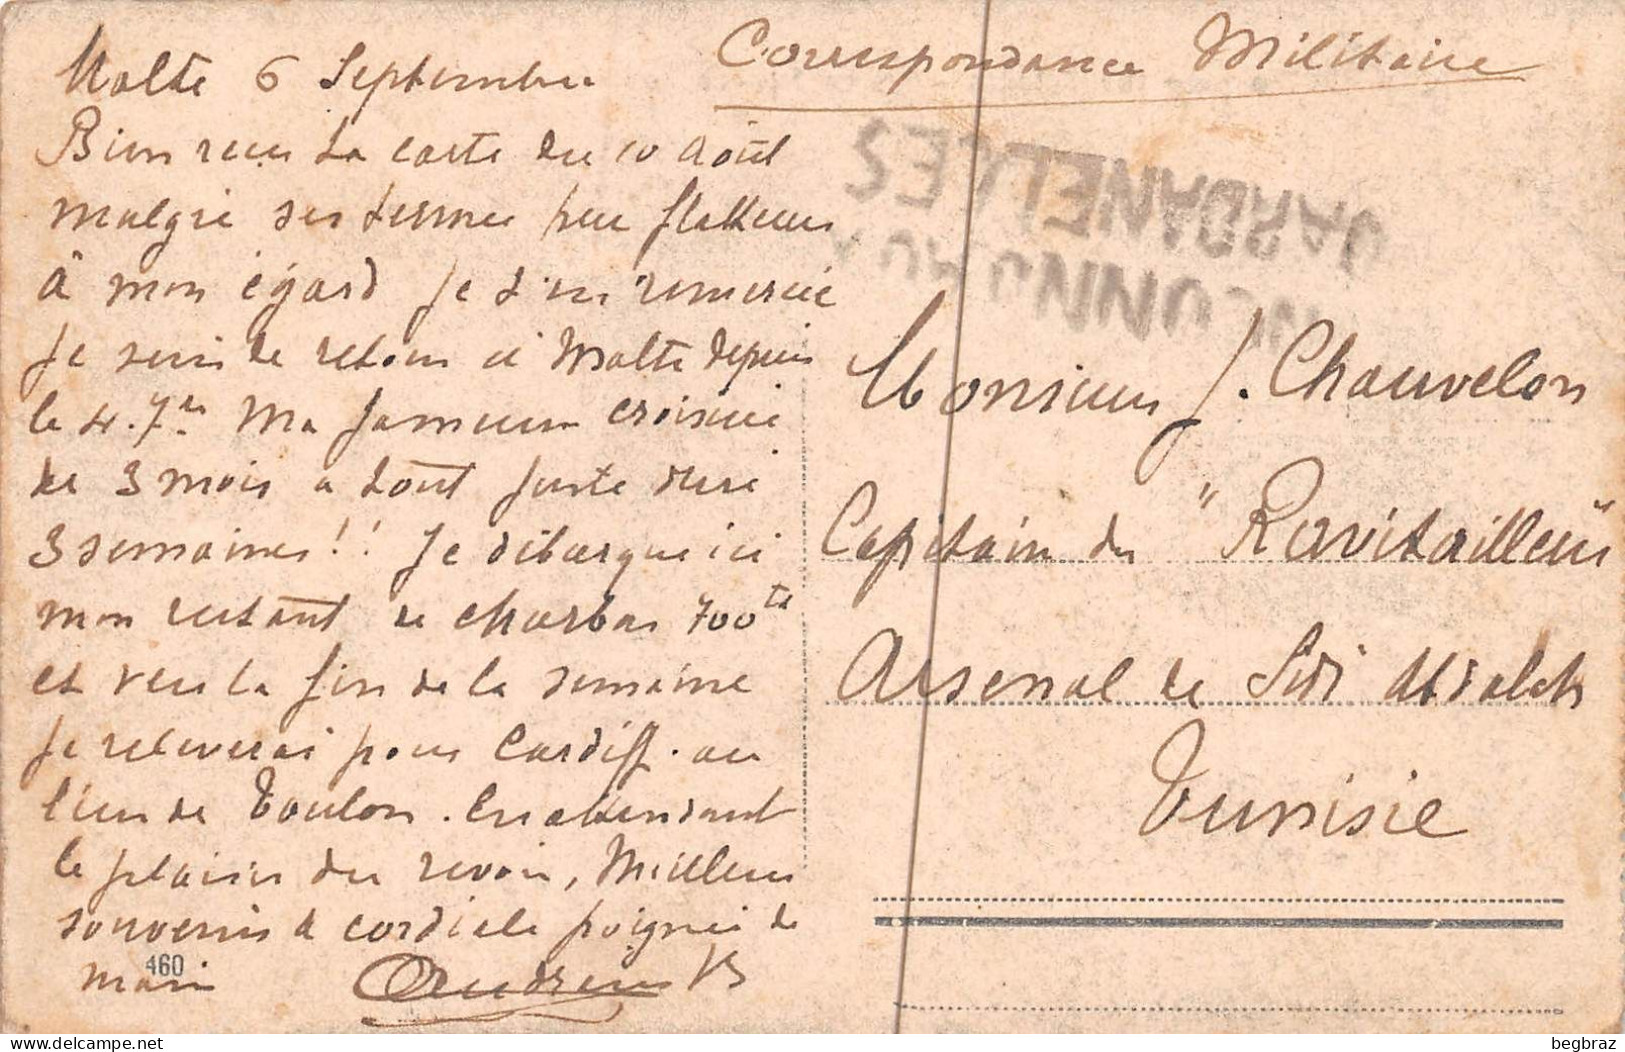 Malte 6 Septembre
Bien reçu ta carte du 10 Août
malgré ses termes peu flatteurs
à mon égard je t'en remercie
Je suis de retour à Malte depuis
le 4. 7re Ma fameuse croisière
de 3 mois a tout juste duré
3 semaines!! Je débarque ici
mon restant de charbon 700ts
et vers la fin de la semaine
je releverai pour Cardiff. au
lieu de Toulon. En attendant
le plaisir du revoir, Meilleurs
souvenirs & cordiale poignée de
main
460
Correspondance Militaire
INCONNU AUX
DARDANELLES
Monsieur J. Chauvelon
Capitain du "Ravitailleur"
Arsenal de Sidi Abdalah
Tunisie
begbraz